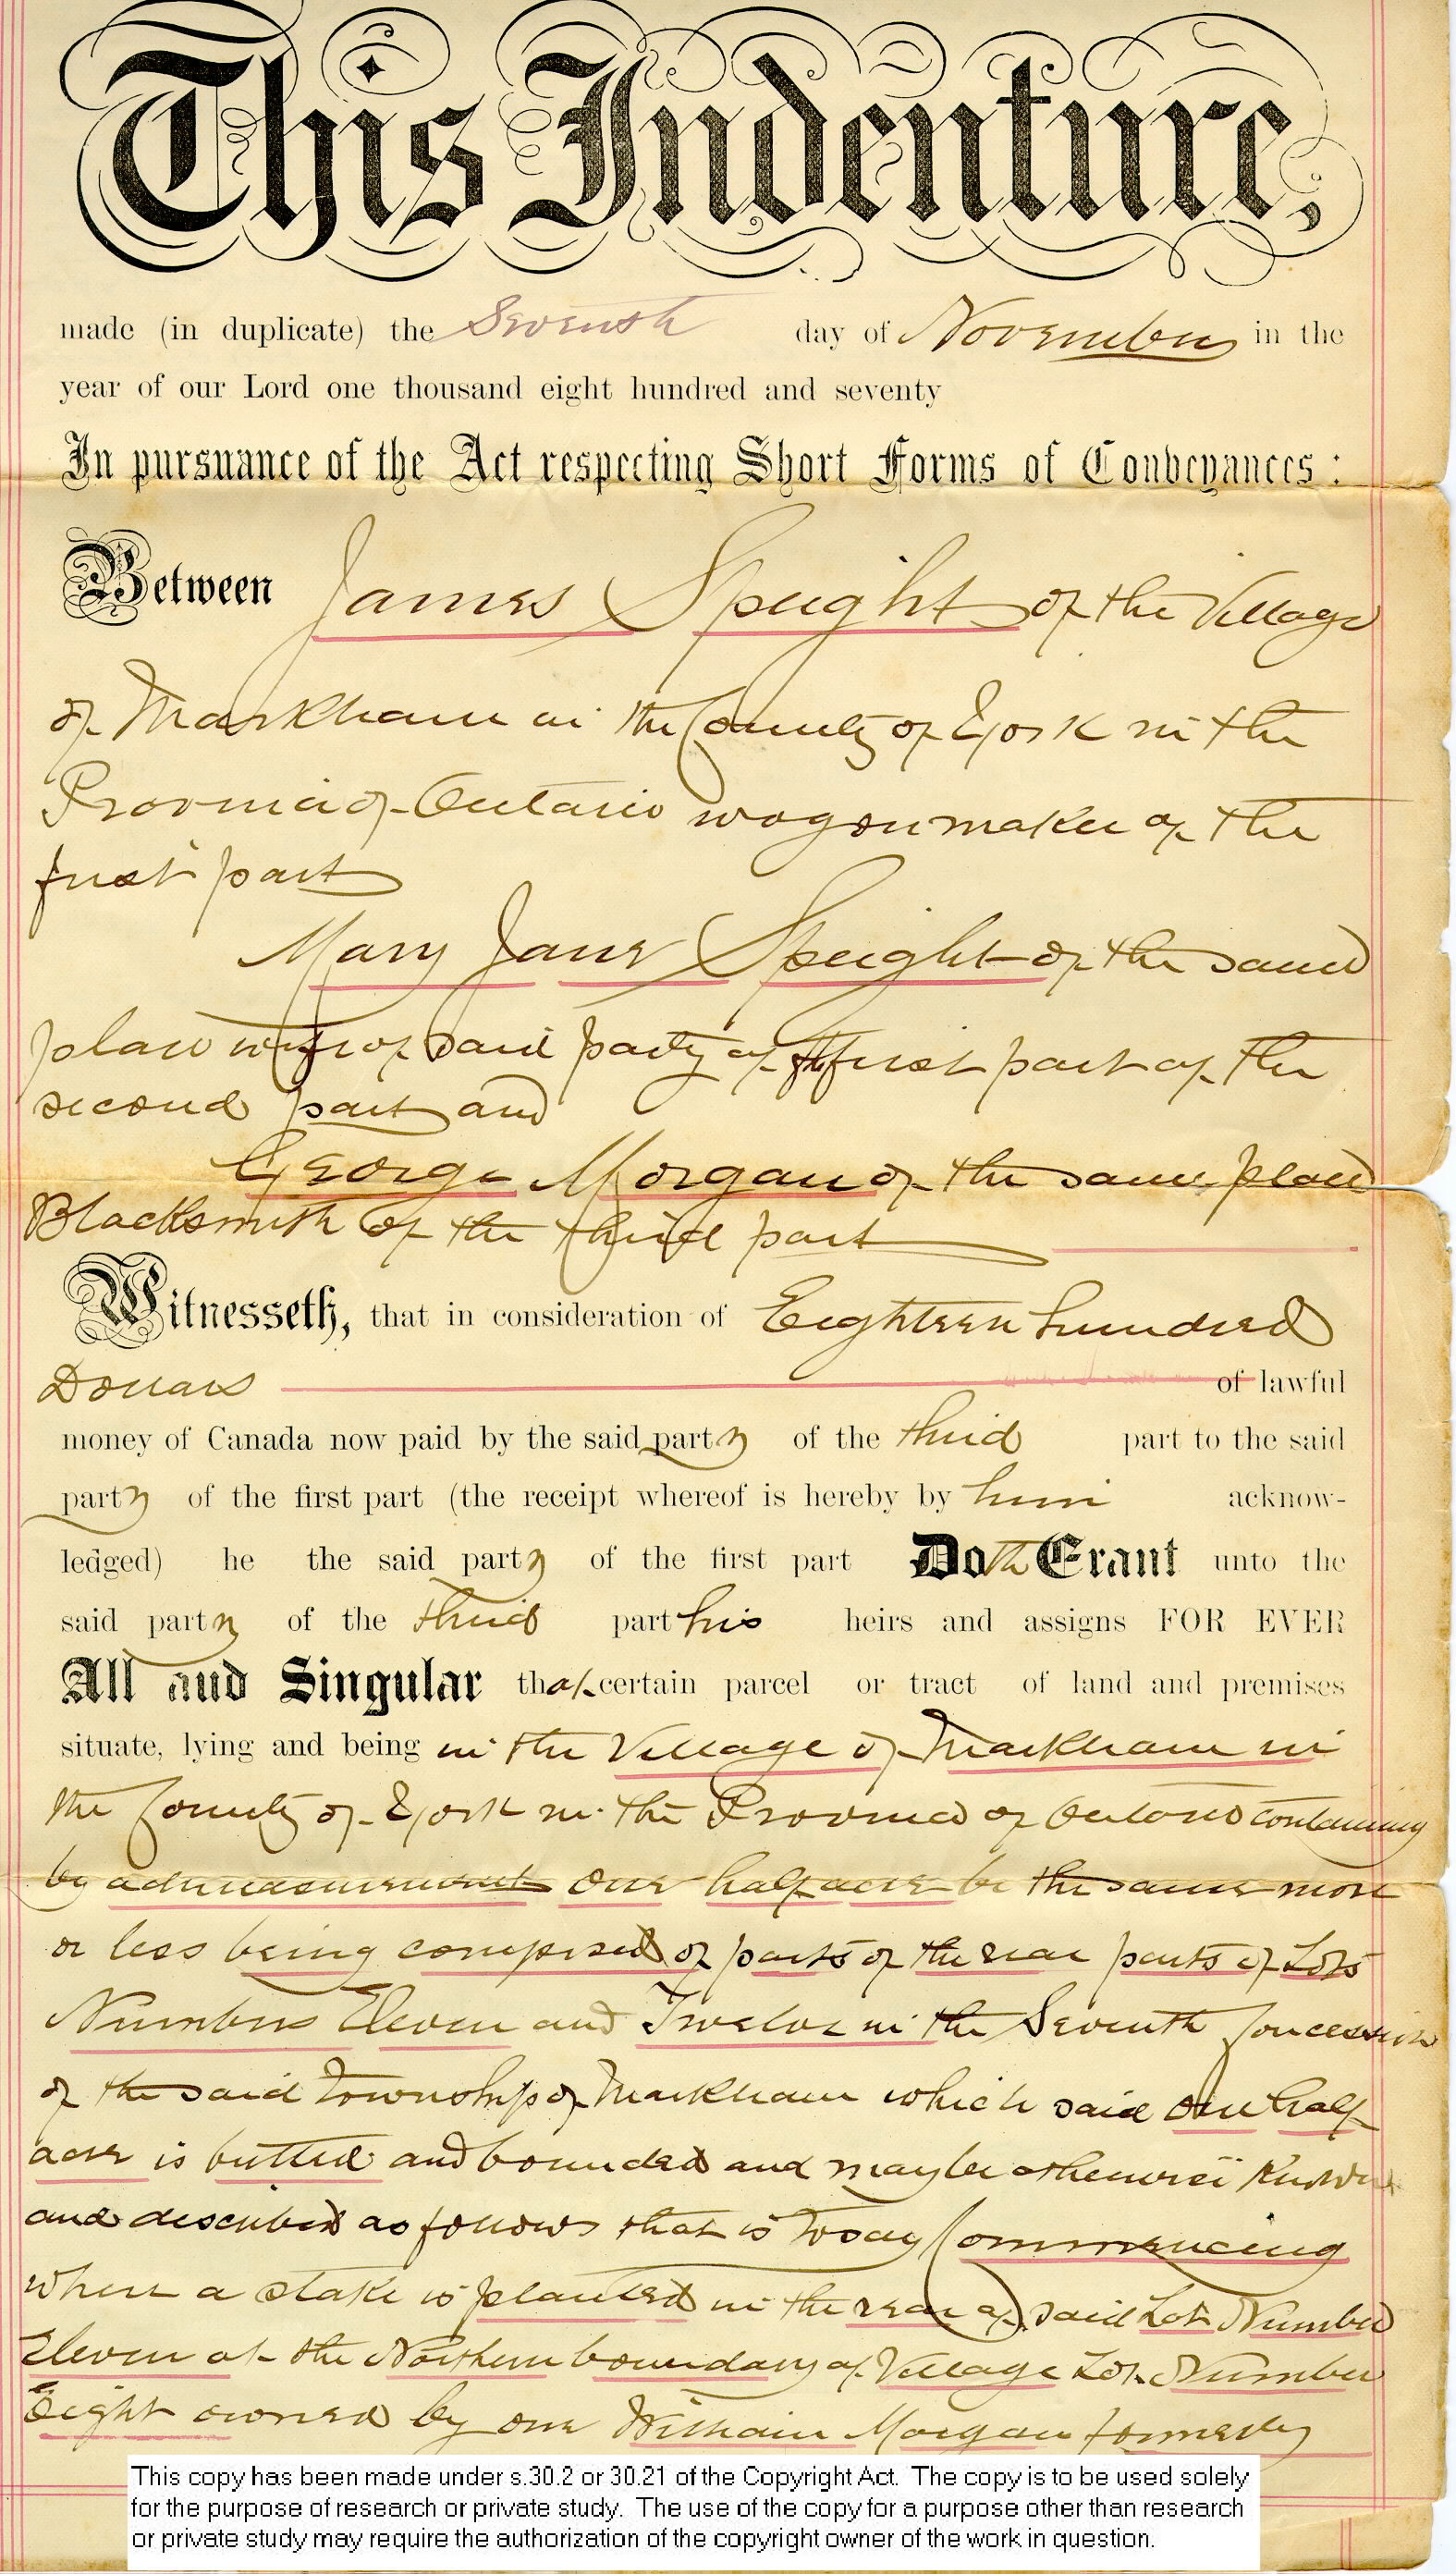 This Indenture,
made (in duplicate) the Seventh day of November in the
year of our Lord one thousand eight hundred and seventy
In pursuance of the Act respecting Short Forms of Conveyances :
Between James Speight of the Village
of Markham in the County of York in the
Province of Ontario wagon maker of the
first part
Mary Jane Speight of the same
place wife of said party of the first part of the
second part and
George Morgan of the same place
Blacksmith of the third part
Witnesseth, that in consideration of Eighteen hundred
Dollars of lawful
money of Canada now paid by the said party of the third part to the said
party of the first part (the receipt whereof is hereby by him acknow-
ledged) he the said party of the first part Doth Grant unto the
said party of the third part his heirs and assigns FOR EVER
All and Singular that certain parcel or tract of land and premises
situate, lying and being in the Village of Markham in
the County of York in the Province of Ontario containing
by admeasurement one half acre be the same more
or less being composed of parts of the rear parts of Lots
Numbers Eleven and Twelve in the Seventh Concession
of the said Township of Markham which said one half
acre is butted and bounded and may be otherwise known
and described as follows that is to say Commencing
where a stake is planted in the rear of said Lot Number
Eleven at the Northern boundary of Village Lot Number
Eight owned by one William Morgan formerly
This copy has been made under s.30.2 or 30.21 of the Copyright Act. The copy is to be used solely
for the purpose of research or private study. The use of the copy for a purpose other than research
or private study may require the authorization of the copyright owner of the work in question.